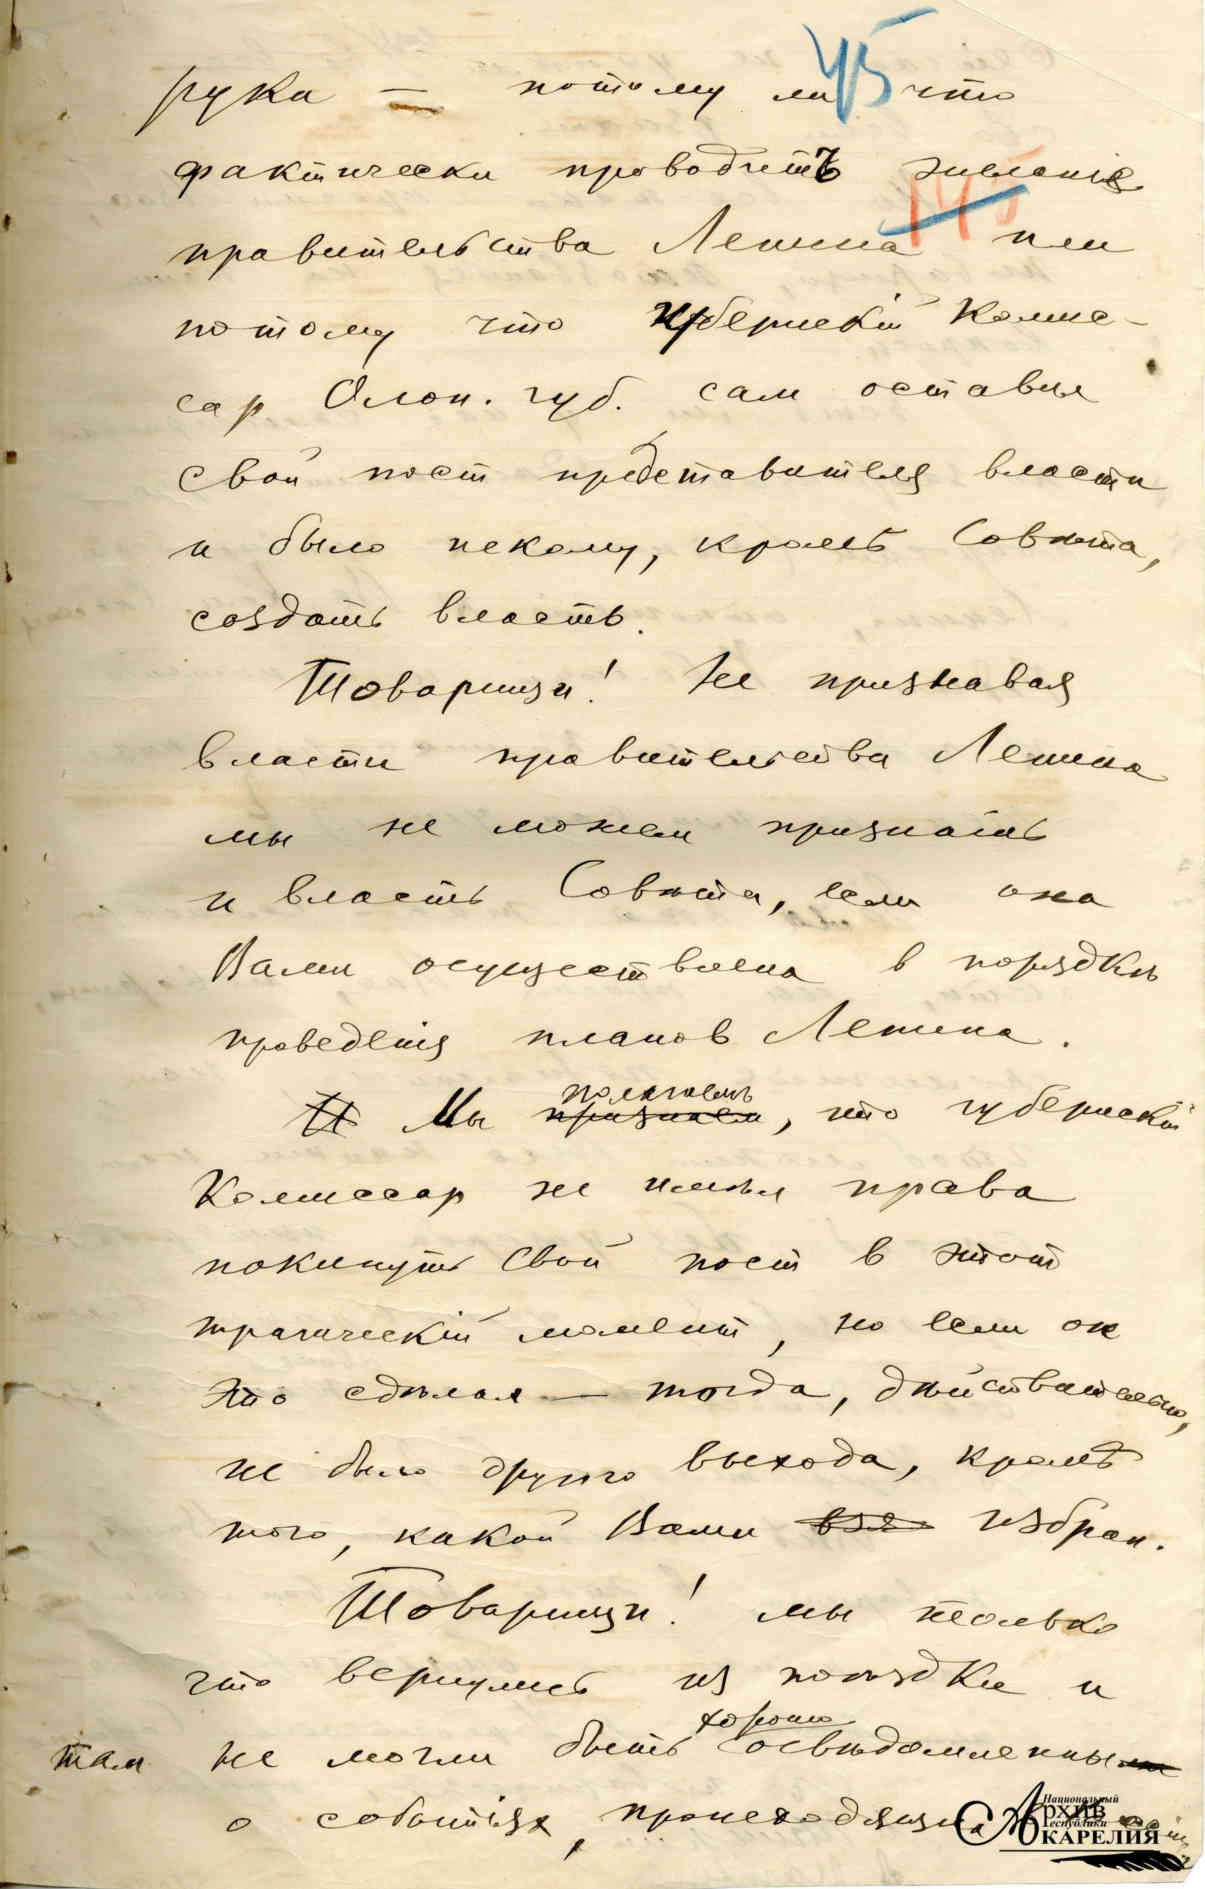 45
рука — потому ли что
фактически проводитъ желанія
145
правительства Ленина или
потому что губернскій комис-
сар Олон. губ. сам оставил
свой пост представителя власти
и было некому, кромѣ Совѣта,
создать власть.
Товарищи! Не признавая
власти правительства Ленина
мы не можем признать
и власть Совѣта, если она
Вами осуществлена в порядкѣ
проведенія планов Ленина.
полагаемъ
Мы признаем, что губернскій
Комиссар не имѣл права
покинуть свой пост в этот
трагическій момент, но если он
это сдѣлал — тогда, дѣйствительно,
не было другого выхода, кромѣ
того, какой Вами взя избран.
Товарищи! мы только
что вернулись из поѣздки и
хорошо
там не могли быть освѣдомленны
о событіях, происходящих
Национальный
АРХИВ
Республики
КАРЕЛИЯ